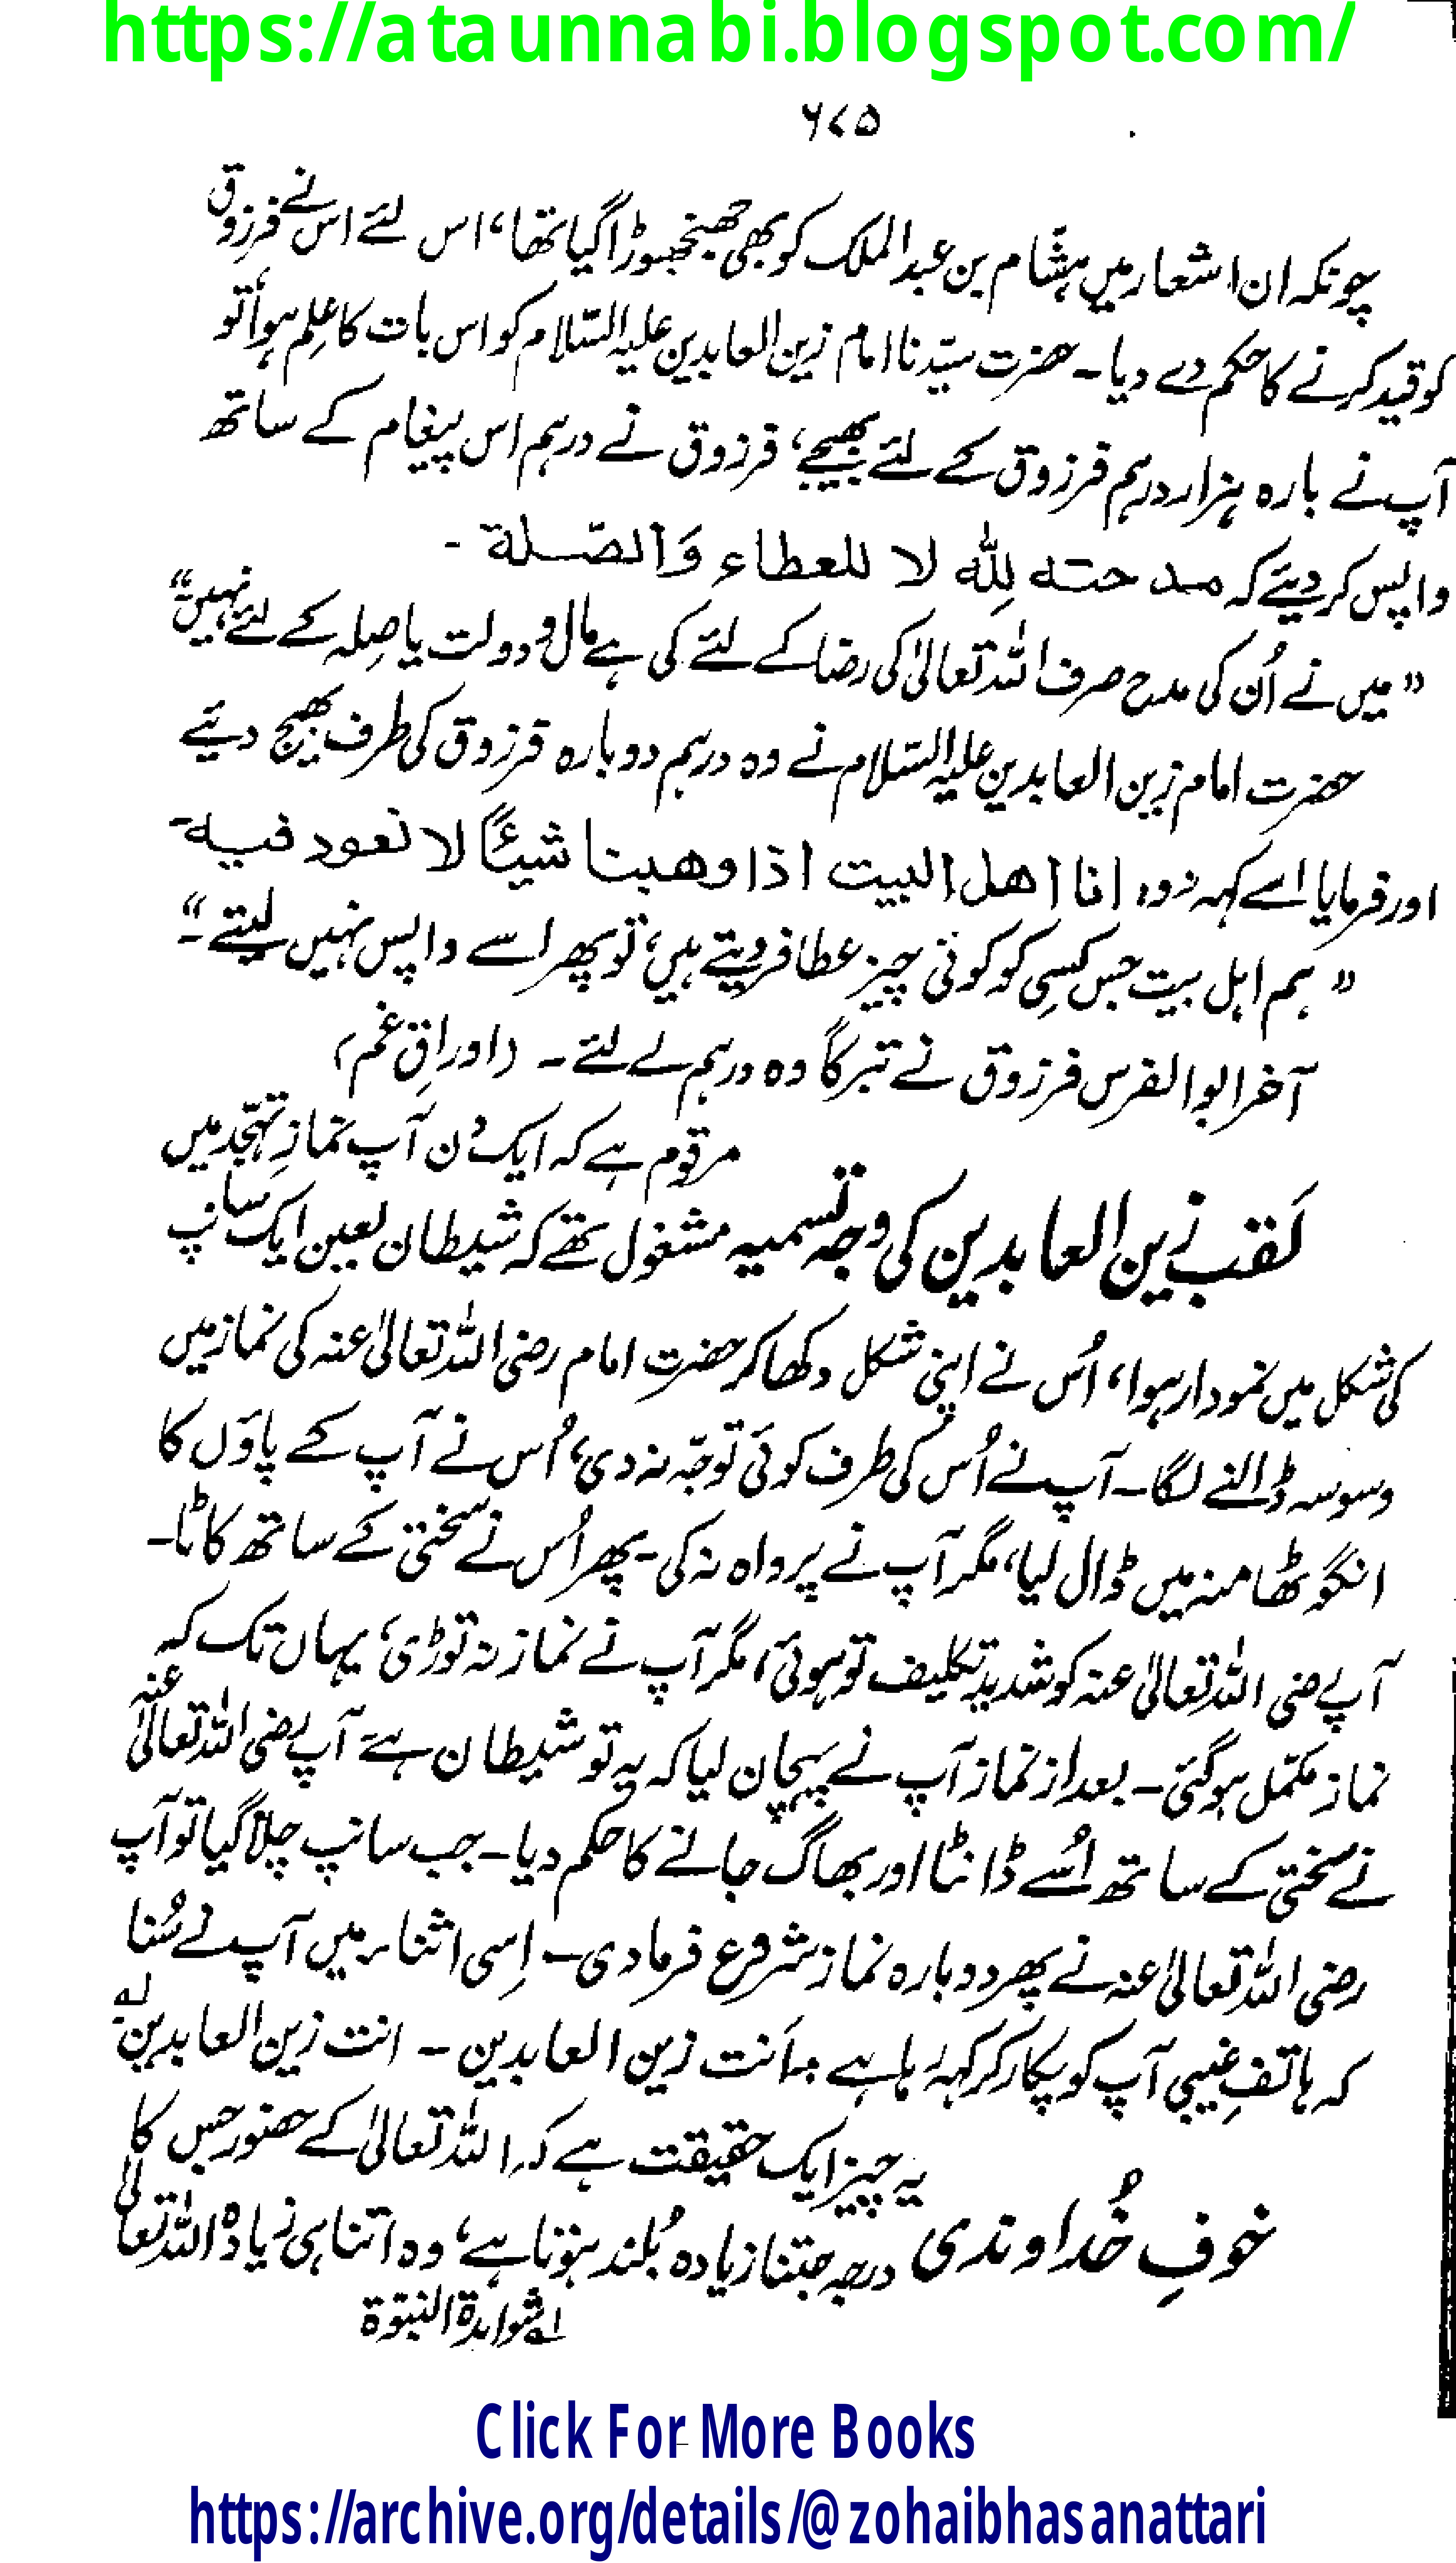 https://ataunnabi.blogspot.com/
۶۷۵
چونکہ ان اشعار میں ہشّام بن عبدالملک کو بھی جھنجھوڑا گیا تھا، اس لئے اس نے فرزوق
کو قید کرنے کا حکم دے دیا۔ حضرت سیّدنا امام زین العابدین علیہ السّلام کو اس بات کا علم ہوا تو
آپ نے بارہ ہزار درہم فرزوق کے لئے بھیجے، فرزوق نے درہم اس پیغام کے ساتھ
واپس کر دیئے کہ مدحته لِلّٰه لا للعطاء وَالصّلة ۔
”میں نے اُن کی مدح صرف اللہ تعالیٰ کی رضا کے لئے کی ہے مال و دولت یا صِلہ کے لئے نہیں“
حضرت امام زین العابدین علیہ السّلام نے وہ درہم دوبارہ فرزوق کی طرف بھیج دیئے
اور فرمایا اسے کہہ دو، انا اهل البیت اذا وهبنا شیئاً لا نعود فیه۔
”ہم اہل بیت جس کسِی کو کوئی چیز عطا فر دیتے ہیں، تو پھر اسے واپس نہیں لیتے ۔“
آخر ابوالفرس فرزوق نے تبرکاً وہ درہم لے لئے ۔ (اوراقِ غم)
مرقوم ہے کہ ایک دن آپ نمازِ تہجّد میں
لَقب زین العابدین کی وجہ تسمیہ مشغول تھے کہ شیطان لعین ایک سانپ
کی شکل میں نمودار ہوا، اُس نے اپنی شکل دکھا کر حضرت امام رضی اللہ تعالیٰ عنہ کی نماز میں
وسوسہ ڈالنے لگا۔ آپ نے اُس کی طرف کوئی توجّہ نہ دی، اُس نے آپ کے پاؤں کا
انگوٹھا منہ میں ڈال لیا، مگر آپ نے پرواہ نہ کی۔ پھر اُس نے سختی کے ساتھ کاٹا۔
آپ رضی اللہ تعالیٰ عنہ کو شدید تکلیف تو ہوئی، مگر آپ نے نماز نہ توڑی، یہاں تک کہ
نماز مکمّل ہو گئی۔ بعد از نماز آپ نے پہچان لیا کہ یہ تو شیطان ہے آپ رضی اللہ تعالیٰ عنہ
نے سختی کے ساتھ اُسے ڈانٹا اور بھاگ جانے کا حکم دیا۔ جب سانپ چلا گیا تو آپ
رضی اللہ تعالیٰ عنہ نے پھر دوبارہ نماز شروع فرما دی۔ اِسی اثناء میں آپ نے سُنا
کہ ہاتفِ غیبی آپ کو پکار کر کہہ رہا ہے :۔ اَنت زین العابدین ۔ انت زین العابدین لہ
یہ چیز ایک حقیقت ہے کہ اللہ تعالیٰ کے حضور جس کا
خوفِ خُداوندی درجہ جتنا زیادہ بُلند ہوتا ہے، وہ اتنا ہی زیادہ اللہ تعالیٰ
لہ شواہدۃ النبوّۃ
Click For More Books
https://archive.org/details/@zohaibhasanattari